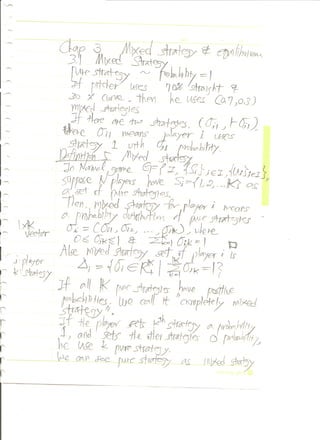 Chap 3 Mixed strategy & equilibrium
3.1 Mixed Strategy
pure strategy ~ probability = 1
If pitcher uses 70% straight &
30% curve, then he uses (0.7, 0.3)
mixed strategies
If there are two strategies, (σi1, 1-σi1),
where σi1 means player i uses
strategy 1 with σi1 probability.
Definition 5 Mixed strategy
In Normal game G={I, {Si}i∈I, {Ui}i∈I},
suppose N players have Si={1,2,...,K} as
a set of pure strategies.
Then, mixed strategy for player i means
a probability distribution of pure strategies
1xK vector
σi = (σi1, σi2, ..., σiK), where
0≤σik≤1 & Σσik=1 □
Also mixed strategy set of player i is
i player
k strategy
Δi = {σi∈ | Σσik=1}
If all K pure strategies have positive
probabilities, we call it "completely mixed
strategy".
If the player sets kth strategy a probability
1, and sets the other strategies 0 probability,
he use k pure strategy.
We can see pure strategy as mixed strategy